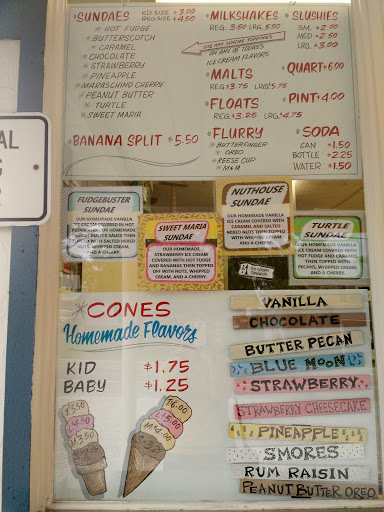 • SUNDAES KD. SIZE • $3.00
REG. SIZE • $4.50
* HOT FUDGE
* BUTTERSCOTCH
* CARAMEL
* CHOCOLATE
* STRAWBERRY
* PINEAPPLE
* MARASCHINO CHERRY
* PEANUT BUTTER
* TURTLE
* SWEET MARIA
• BANANA SPLIT • $5.50
• MILKSHAKES
REG. 3.50 LRG. 5.50
USE ANY SUNDAE TOPPINGS
ON ANY OF TODAY'S
ICE CREAM FLAVORS
• MALTS
REG $3.75 LRG $5.75
• FLOATS
REG. $3.25 LRG. $4.75
• FLURRY
* BUTTERFINGER
* OREO
* REESE CUP
* M&M
• SLUSHIES
SM. • 2.00
MED • 2.50
LRG. • 3.00
QUART $6.00
PINT $4.00
• SODA
CAN $1.50
BOTTLE $2.25
WATER $1.50
FUDGEBUSTER
SUNDAE
OUR HOMEMADE VANILLA
SAUCE THEN
WITH SALTED
MIXED NUTS, WHIPPED
CREAM, AND
A CHERRY.
SWEET MARIA
SUNDAE
OUR HOMEMADE
STRAWBERRY ICE CREAM
COVERED WITH HOT FUDGE
AND BANANAS THEN TOPPED
OFF WITH NUTS, WHIPPED
CREAM, AND A CHERRY.
NUTHOUSE
SUNDAE
OUR HOMEMADE VANILLA
ICE CREAM COVERED IN
CARAMEL
TOPPED WITH SALTED
MIXED NUTS
WHIPPED CREAM,
AND A CHERRY.
TURTLE
SUNDAE
OUR HOMEMADE VANILLA
ICE CREAM COVERED WITH
HOT FUDGE AND CARAMEL
THEN TOPPED WITH
PECANS, WHIPPED CREAM,
AND A CHERRY.
* CONES
Homemade Flavors
KID $1.75
BABY $1.25
$5.50
$4.50
$3.50
$6.00
L$5.00
VANILLA
CHOCOLATE
BUTTER PECAN
BLUE MOON
STRAWBERRY
STRAWBERRY CHEESECAKE
PINEAPPLE
SMORES
RUM RAISIN
PEANUT BUTTER OREO